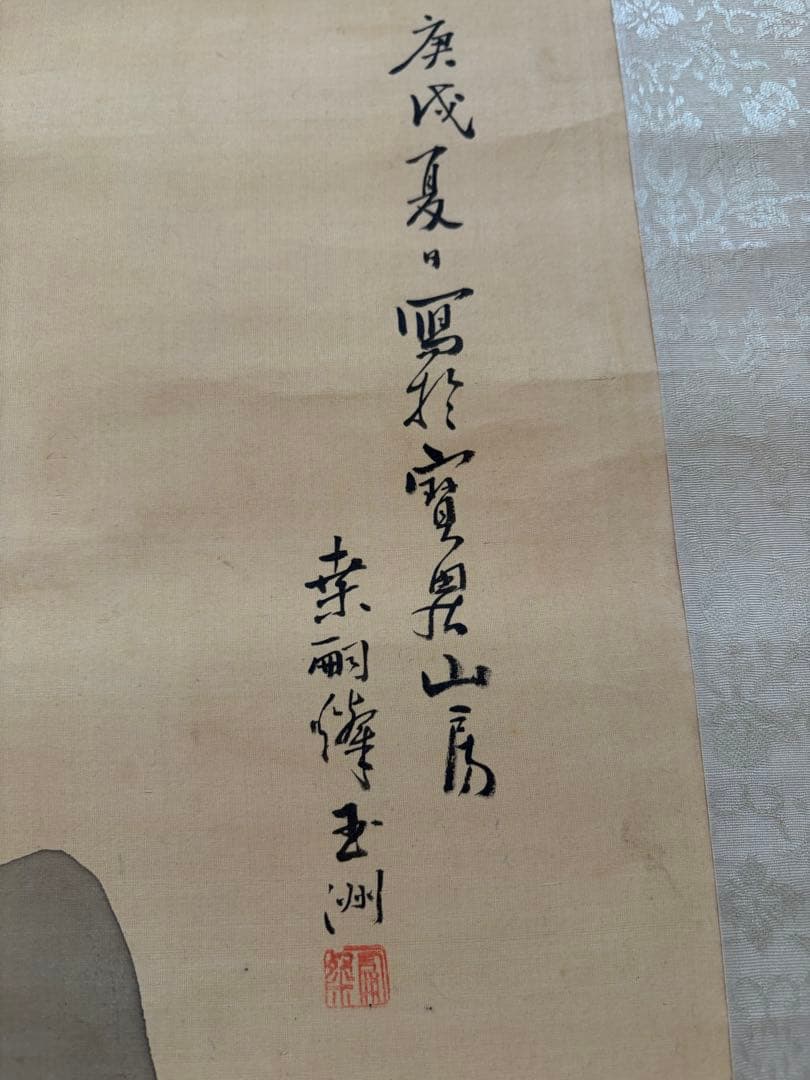 庚戌夏日寫於寶墨山房
桑嗣燦玉洲